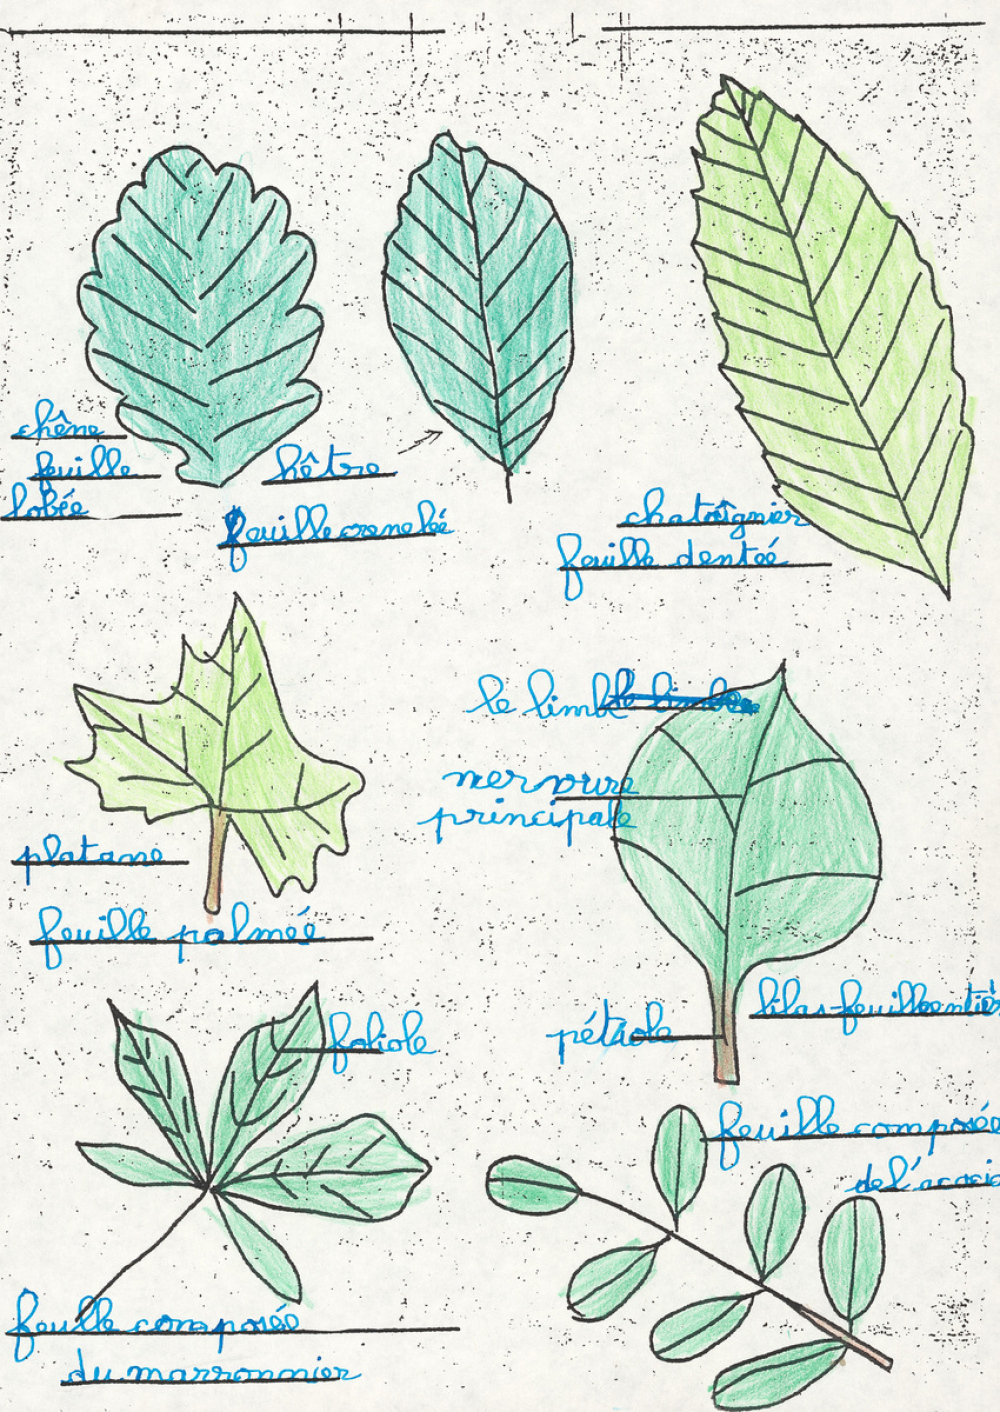 chêne
feuille
lobée
hêtre
feuille crenelée
chataîgnier
feuille dentéé
platane
feuille palméé
le limbe
nervure
principale
pétiole
lilas feuille entière
foliole
feuille composée
du marronnier
feuille composée
de l'acacia